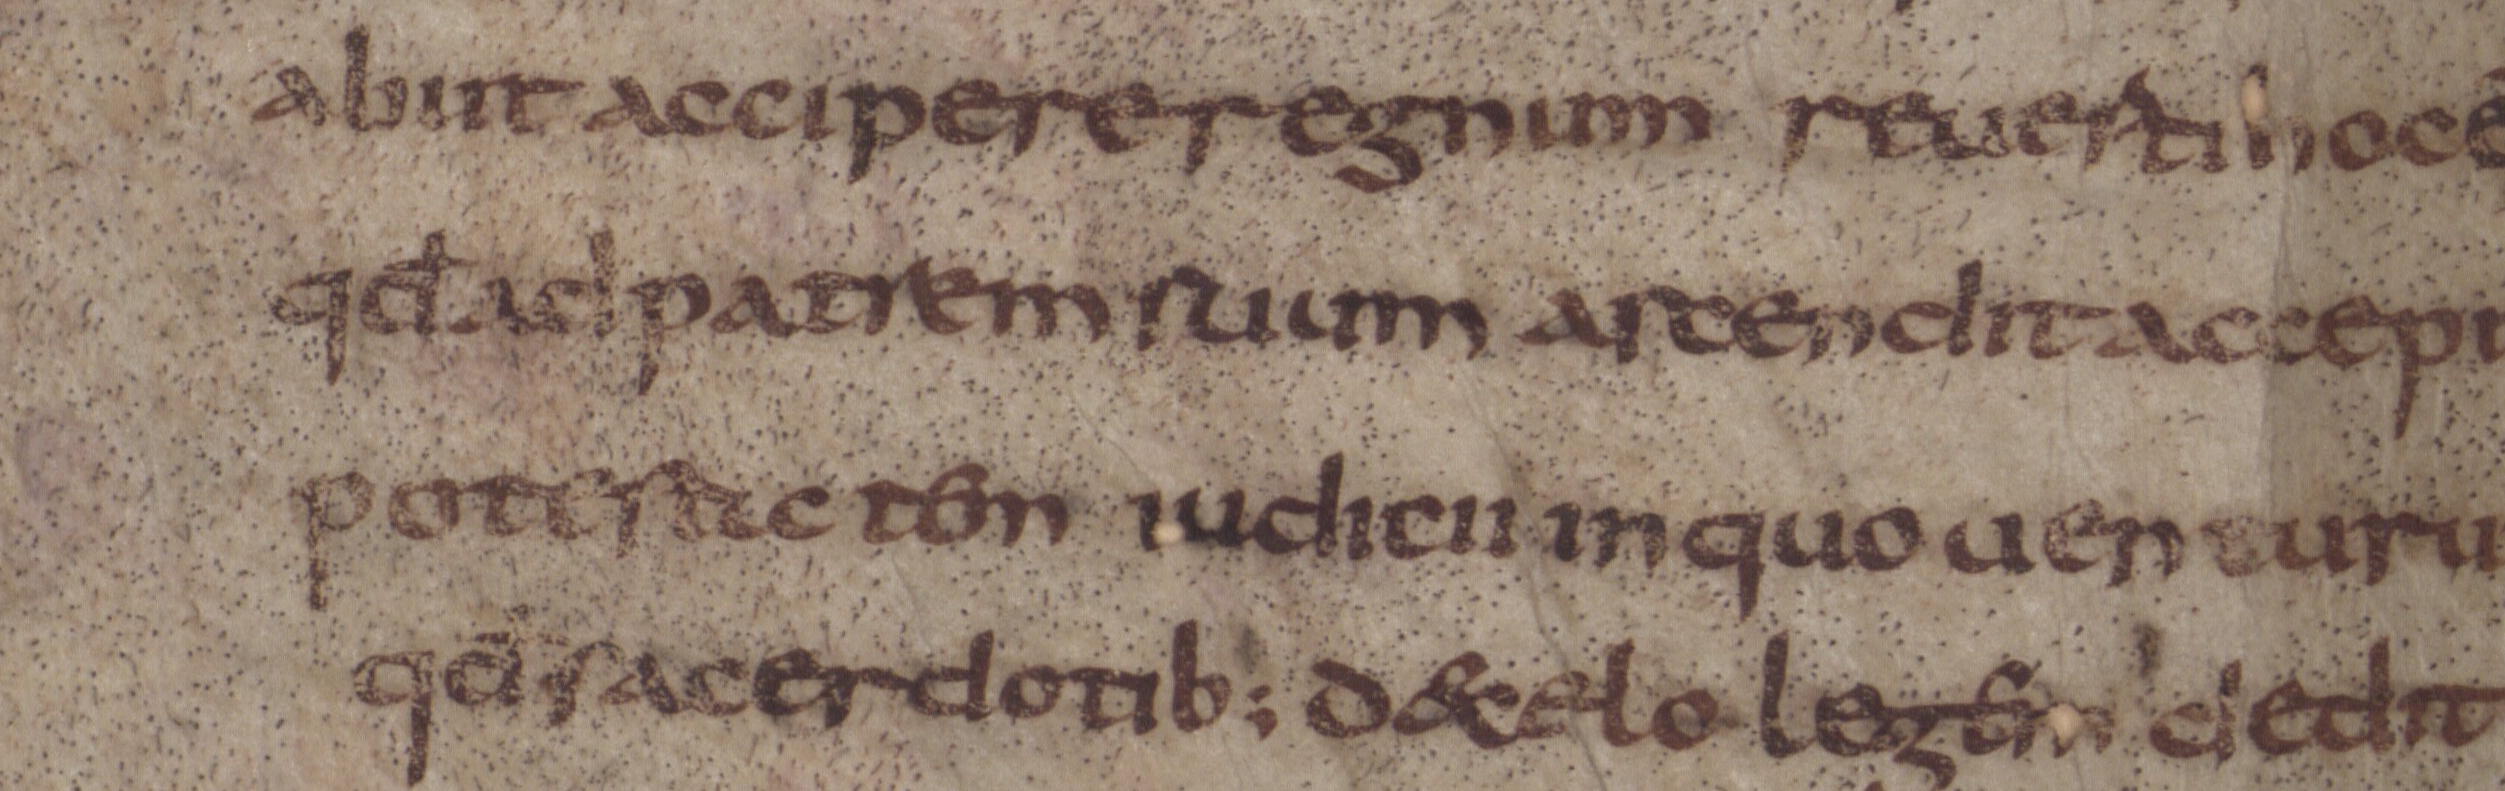 abiit accipere regnum reuerti hoc ē
qđ ad patrem suum ascendit accepi
potestatē tōn iudicii in quo uenturu
qđ sacerdotib; d& celo legem dedit